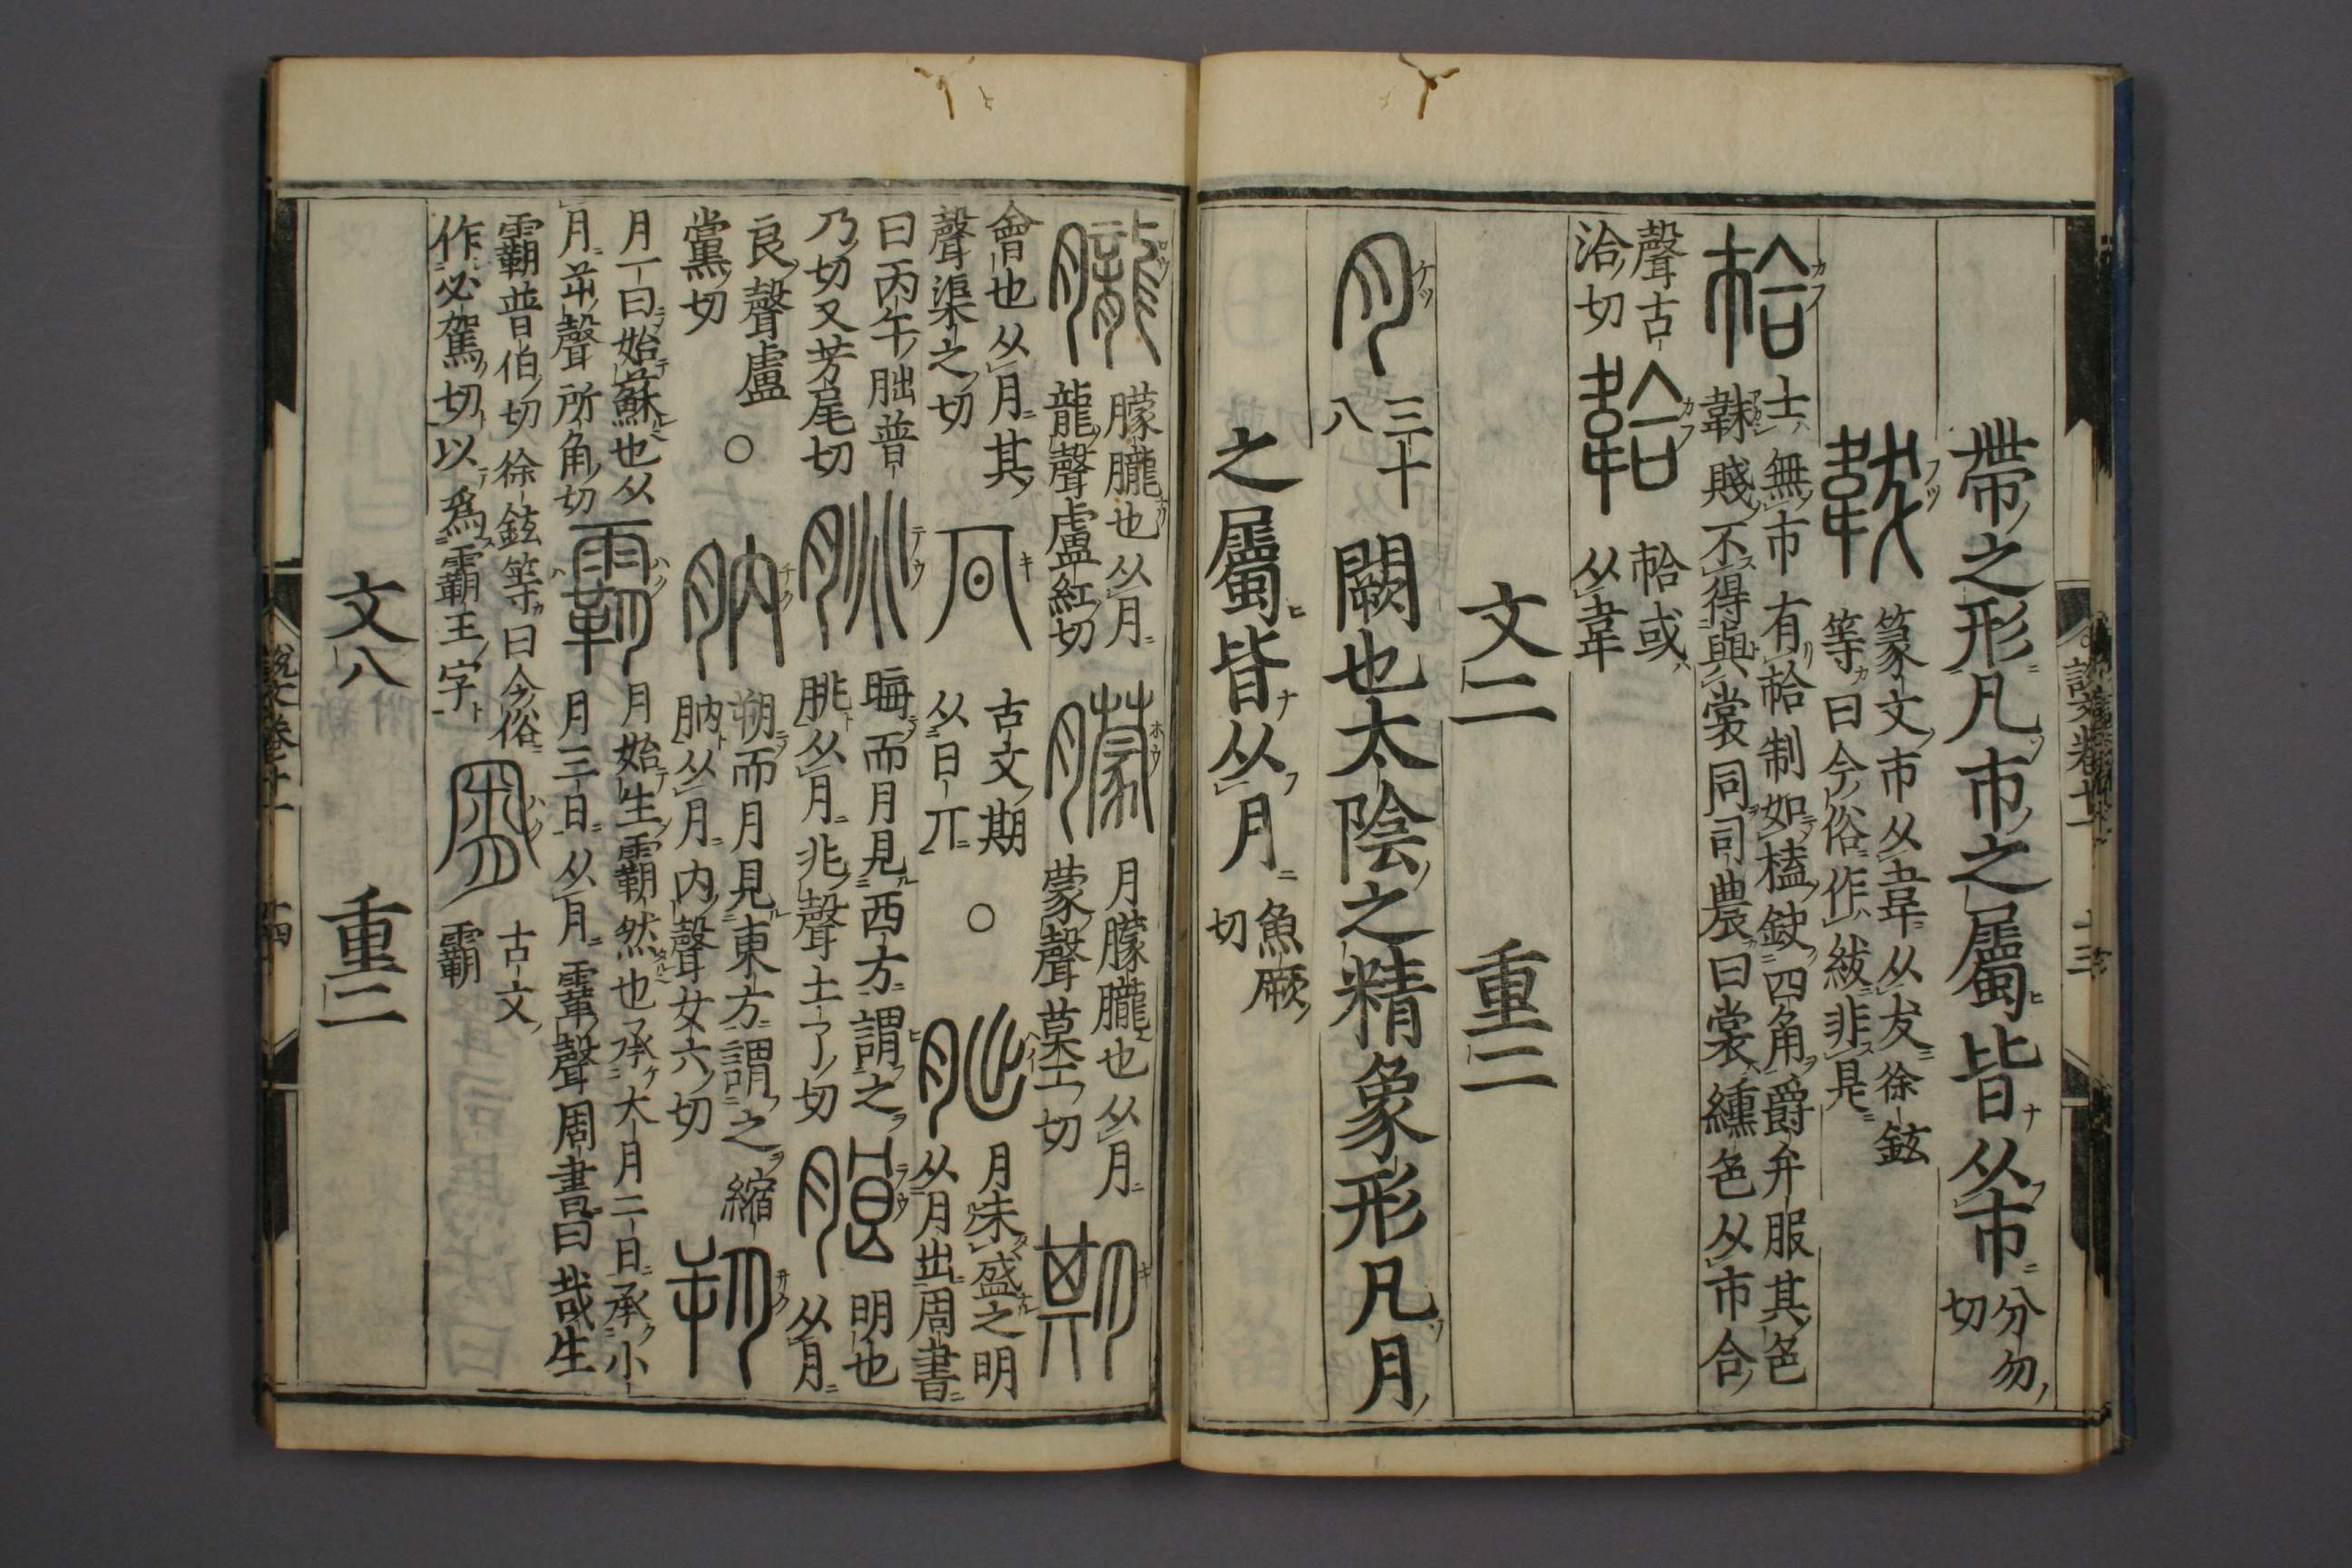 帶之形凡巿之屬皆从巿分勿
切
韍篆文巿从韋从犮徐鉉
等曰今俗作紱非是
帢士無巿有帢制如榼缺四角爵弁服其色
韎賤不得與裳同司農曰裳纁色从巿合
聲古
洽切
韐帢或
从韋
文二 重二
月三十
八
闕也太陰之精象形凡月
之屬皆从月魚厥
切
朧朦朧也从月
龍聲盧紅切
朦月朦朧也从月
蒙聲莫工切
期
會也从月其
聲渠之切
古文期
从日丌
○
朏月未盛之明
从月出周書
曰丙午朏普
乃切又芳尾切
朓晦而月見西方謂之
朓从月兆聲土了切
朖明也
从月
良聲盧
黨切
○
肭朔而月見東方謂之縮
肭从月内聲女六切
朔
月一曰始蘇也从
月屰聲所角切
霸月始生霸然也承大月二日承小
月三日从月䨣聲周書曰哉生
霸普伯切徐鉉等曰今俗
作必駕切以爲霸王字
古文
霸
文八 重二
說文卷十一 十四